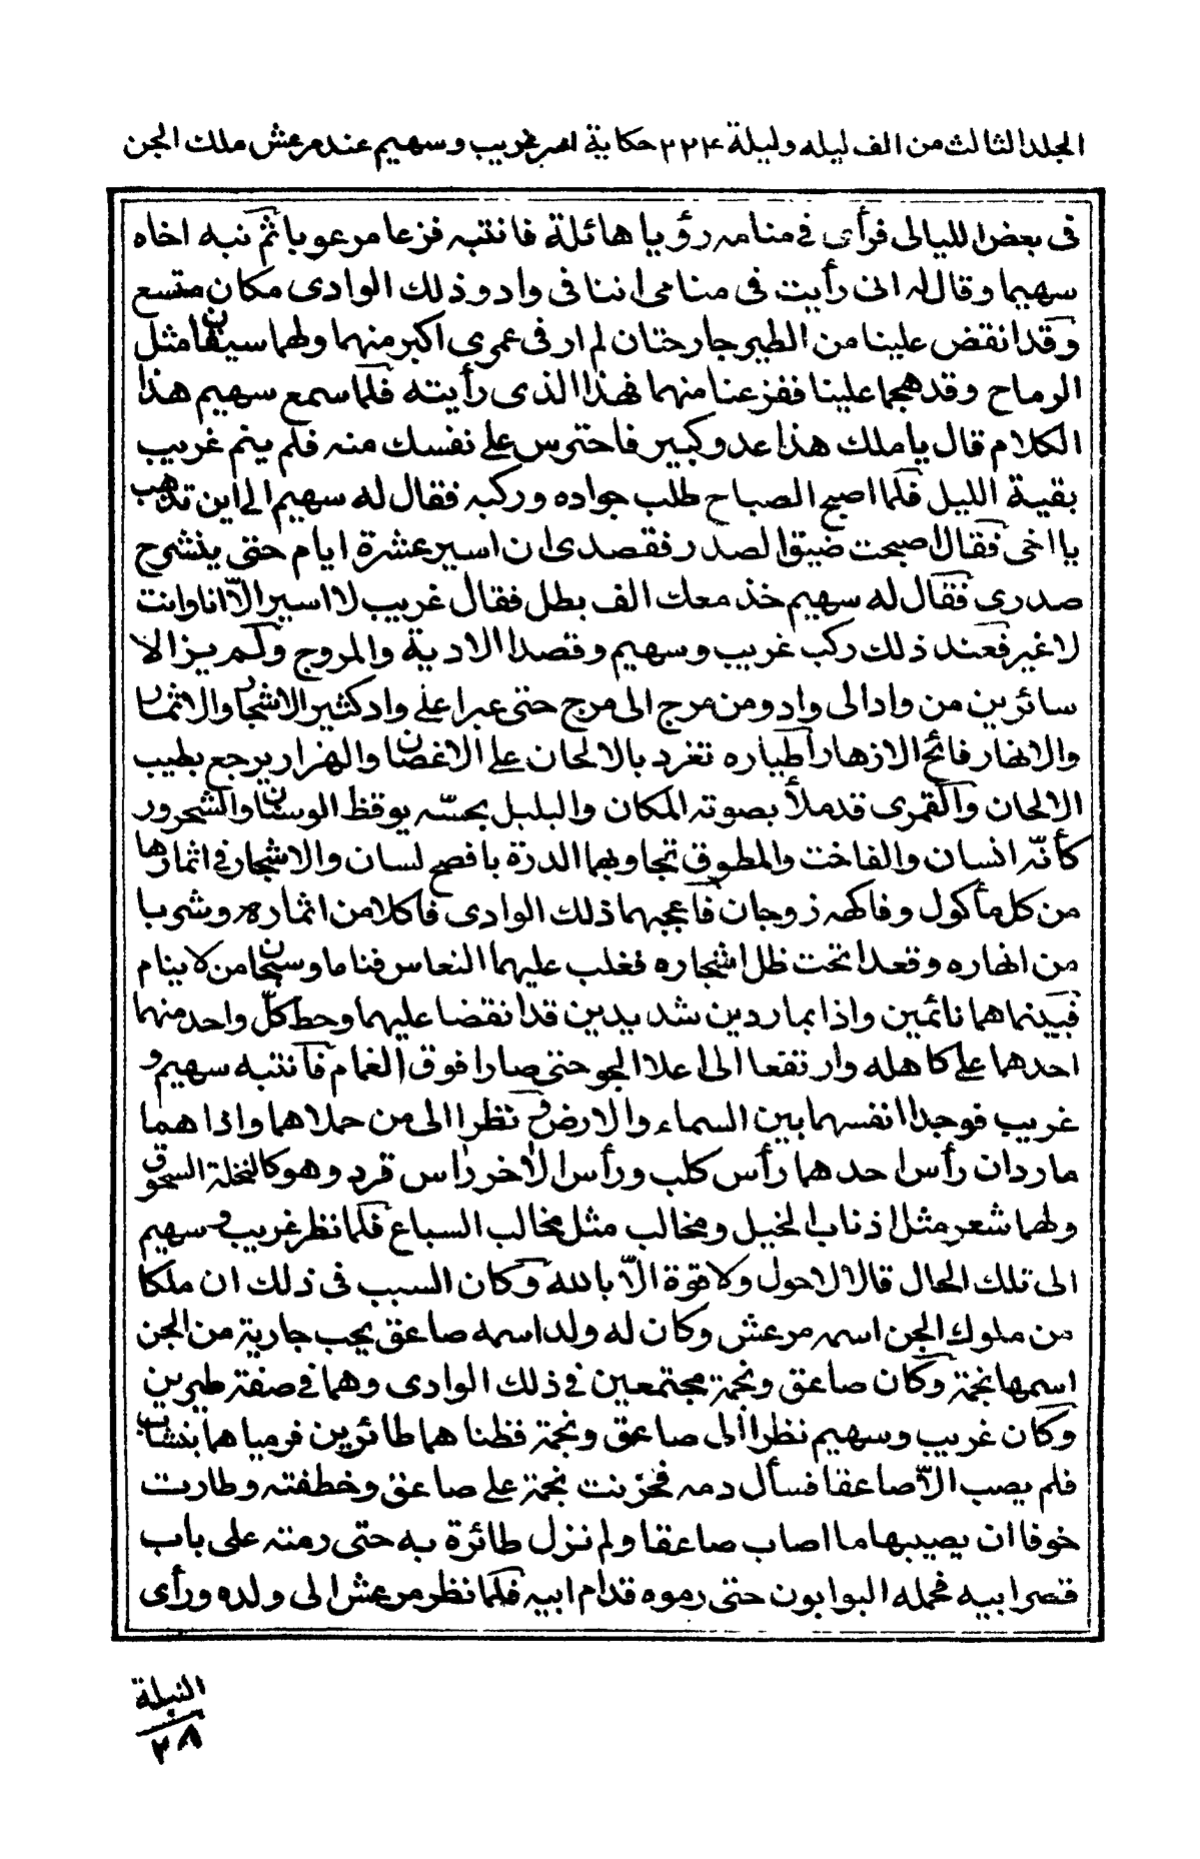 المجلد الثالث من الف ليله وليلة ٢٢٤ حكاية امر غريب وسهيم عند مرعش ملك الجن
فى بعض الليالى فرأى فى منامه رؤيا هائلة فانتبه فزعا مرعوبا ثم نبه اخاه
سهيما وقال له انى رأيت فى منامى اننا فى واد وذلك الوادى مكان متسع
وقد انقض علينا من الطير جارحتان لم ار فى عمرى اكبر منهما ولهما سيقان مثل
الرماح وقد هجما علينا ففزعنا منهما فهذا الذى رأيته فلما سمع سهيم هذا
الكلام قال يا ملك هذا عدو كبير فاحترس على نفسك منه فلم ينم غريب
بقية الليل فلما اصبح الصباح طلب جواده وركبه فقال له سهيم الى اين تذهب
يا اخى فقال اصبحت ضيق الصدر فقصدى ان اسير عشرة ايام حتى ينشرح
صدرى فقال له سهيم خذ معك الف بطل فقال غريب لا اسير الّا انا وانت
لا غير فعند ذلك ركب غريب وسهيم وقصدا الادية والمروج ولم يزالا
سائرين من واد الى واد ومن مرج الى مرج حتى عبرا على واد كثير الاشجار والاثمار
والانهار فائح الازهار اطياره تغرد بالالحان على الاغصان والهزار يرجع بطيب
الالحان والقمرى قد ملأ بصوته المكان والبلبل بحسّه يوقظ الوسنان والشحرور
كأنّه انسان والفاخت والمطوق تجاوبهما الدرة بافصح لسان والاشجار فى اثمارها
من كل مأكول وفاكهه زوجان فاعجبهما ذلك الوادى فاكلا من اثماره وشربا
من انهاره وقعدا تحت ظل اشجاره فغلب عليهما النعاس فناما وسبحان من لا ينام
فبينما هما نائمين واذا بماردين شديدين قد انقضا عليهما وحط كلّ واحد منهما
احدهما على كاهله وارتفعا الى اعلا الجو حتى صارا فوق الغمام فانتبه سهيم و
غريب فوجدا انفسهما بين السماء والارض ونظرا الى من حملاهما واذا هما
ماردان رأس احدهما رأس كلب ورأس الاخر رأس قرد وهو كالنخلة السحوق
ولهما شعر مثل اذناب الخيل ومخالب مثل مخالب السباع فلما نظر غريب وسهيم
الى تلك الحال قالا لا حول ولا قوة الّا بالله وكان السبب فى ذلك ان ملكا
من ملوك الجن اسمه مرعش وكان له ولد اسمه صاعق يحب جارية من الجن
اسمها نجمة وكان صاعق ونجمة مجتمعين فى ذلك الوادى وهما فى صفة طيرين
وكان غريب وسهيم نظرا الى صاعق ونجمة فظناهما طائرين فرمياهما بنشاب
فلم يصب الّا صاعقا فسأل دمه فحزنت نجمة على صاعق وخطفته وطارت
خوفا ان يصيبها ما اصاب صاعقا ولم نزل طائرة به حتى رمته على باب
قصر ابيه فحمله البوابون حتى رموه قدام ابيه فلما نظر مرعش الى ولده ورأى
النبلة
٢٨